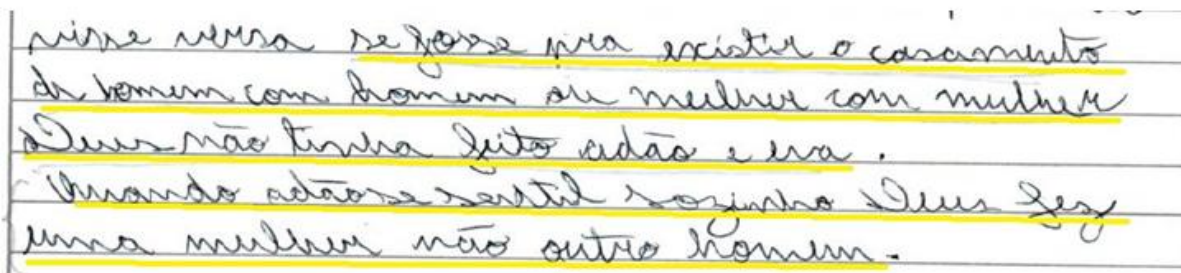 visse versa se fosse pra existir o casamento
de homem com homem ou mulher com mulher
Deus não tinha feito adão e eva.
Quando adão se sentil sozinho Deus fez
uma mulher não outro homem.